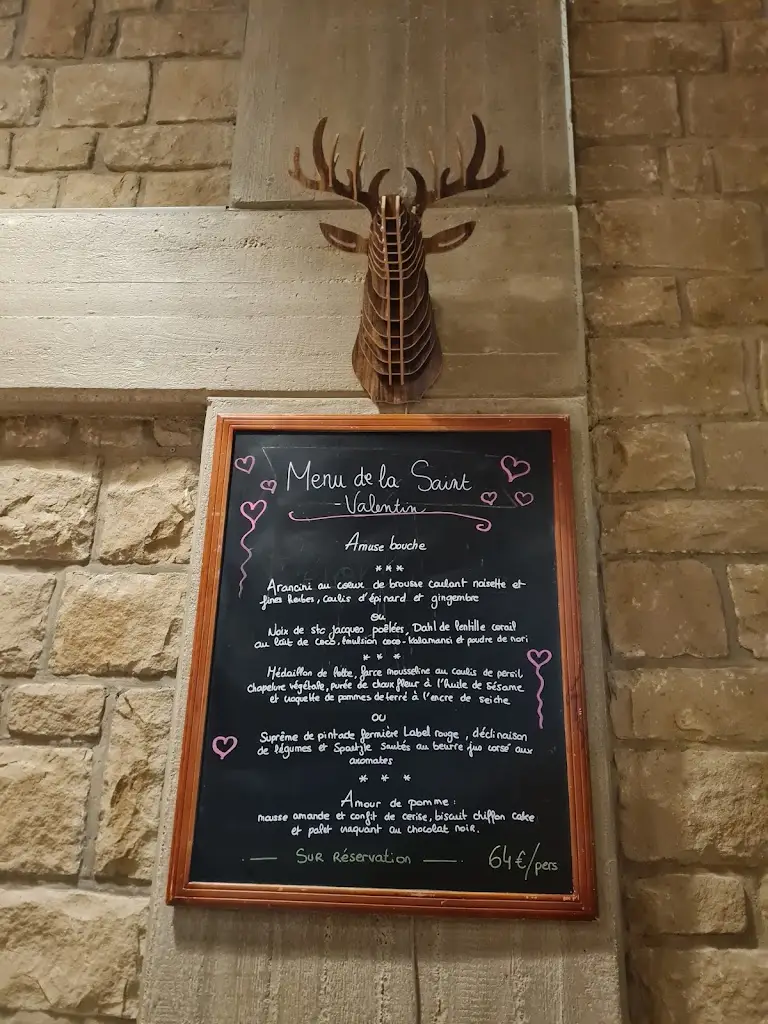 Menu de la Saint
-Valentin
Amuse bouche
***
Arancini au coeur de brousse coulant noisette et
fines herbes, coulis d'épinard et gingembre
ou
Noix de stc jacques poêlées, Dahl de lentille corail
au lait de coco, émulsion coco-kalamanci et poudre de nori
* * *
Médaillon de lotte, farce mousseline au coulis de persil
chapelure végétale, purée de choux fleur à l'huile de Sésame
et croquette de pommes de terre à l'encre de seiche
ou
Suprême de pintade fermière Label rouge, déclinaison
de légumes et Spaetzle sautés au beurre jus corsé aux
aromates
* * *
Amour de pomme :
mousse amande et confit de cerise, biscuit chiffon cake
et palet craquant au chocolat noir.
— Sur Réservation — 64€/pers